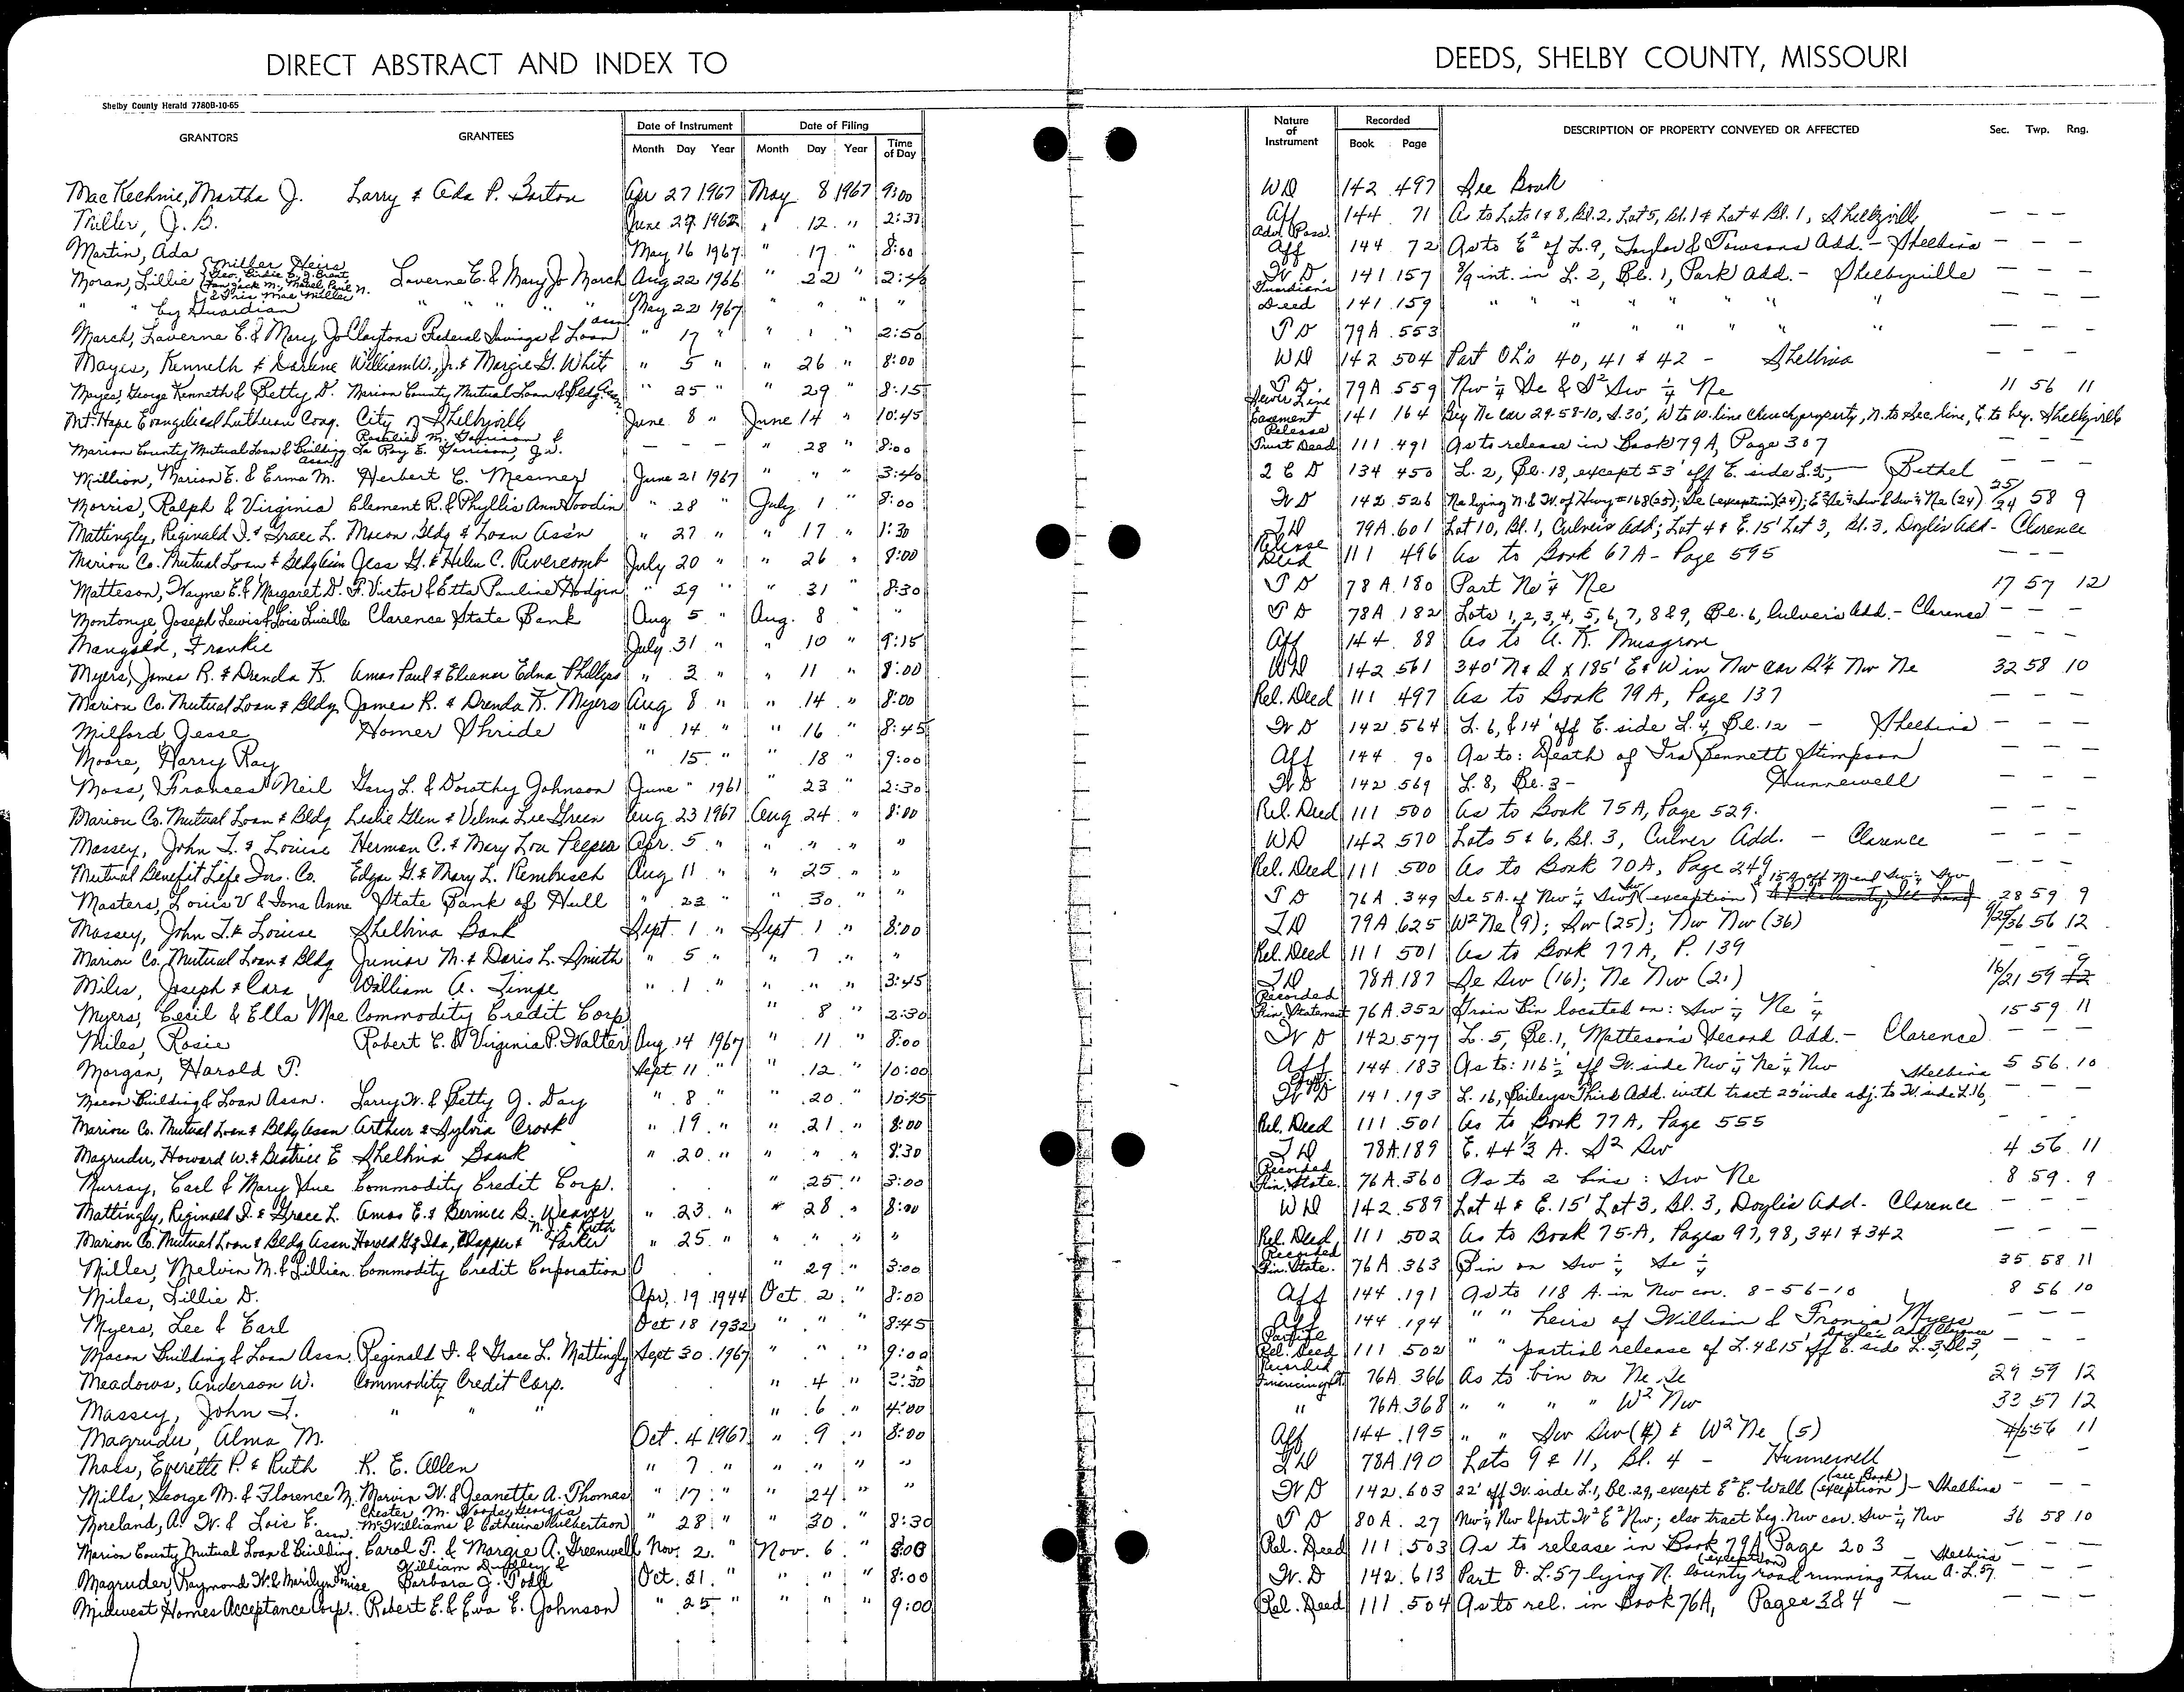 DIRECT ABSTRACT AND INDEX TO DEEDS, SHELBY COUNTY, MISSOURI
Shelby County Herald 7780B-10-65
GRANTORS GRANTEES Date of Instrument Month Day Year Date of Filing Month Day Year Time of Day Nature of Instrument Recorded Book Page DESCRIPTION OF PROPERTY CONVEYED OR AFFECTED Sec. Twp. Rng.
MacKechnie, Martha J. Larry & Ada P. Barton Apr 27 1967 May 8 1967 9:00 WD 142 497 See Book
Miller, J. B. June 29 1962 " 12 " 2:37 Aff 144 71 As to Lots 1 & 8, Bl. 2, Lot 5, Bl. 1 & Lot 4 Bl. 1, Shelbyville — — —
Martin, Ada May 16 1967 " 17 " 8:00 Adv. Poss. Aff 144 72 As to E² of L. 9, Taylor & Towsons Add. - Shelbina — — —
Moran, Lillie (Miller Heirs Laverne E. & Mary Jo March Aug 22 1966 " 22 " 2:40 W D 141 157 int. in L. 2, Bl. 1, Park Add. - Shelbyville — — —
" by Guardian " " " May 22 1967 " " " Guardian's Deed 141 159 " " " " " " "
March, Laverne E. & Mary Jo Claytons Federal Savings & Loan assn " 17 " " " 2:50 T D 79A 553 " " " " " " — — —
Mayes, Kenneth & Darlene William W., Jr. & Margie G. White " 5 " " 26 " 8:00 WD 142 504 Part OL's 40, 41 & 42 - Shelbina — — —
Mayes, George Kenneth & Betty D. Marion County Mutual Loan & Bldg. Assn " 25 " " 29 " 8:15 T D 79A 559 Nw ¼ Se & S² Sw ¼ Ne 11 56 11
Mt. Hope Evangelical Lutheran Cong. City of Shelbyville June 8 " June 14 " 10:45 Sewer Line Easement 141 164 Beg Ne cor 29-58-10, S. 30', W to W. line Church property, N. to Sec. line, E. to beg. Shelbyville
Marion County Mutual Loan & Building Assn Rosalied M. Garrison & La Roy E. Garrison, Jr. — — — " 28 " 8:00 Release Trust Deed 111 491 As to release in Book 79A, Page 307 — — —
Million, Marion E. & Erma M. Herbert C. Mesmer June 21 1967 " " " 3:40 2 C D 134 450 L. 2, Bl. 18, except 53' off E. side L. 2, — Bethel
Morris, Ralph & Virginia Clement R. & Phyllis Ann Goodin " 28 " July 1 " 8:00 W D 142 526 Ne lying N. & W. of Hwy #168 (25); Se (exception) (24); E² Se ¼ Sw & Sw ¼ Ne (24) 25/24 58 9
Mattingly, Reginald I. & Grace L. Macon Bldg & Loan Ass'n " 27 " " 17 " 1:30 T D 79A 601 Lot 10, Bl. 1, Culvers Add; Lot 4 & E. 15' Lot 3, Bl. 3, Doyles Add - Clarence
Marion Co. Mutual Loan & Bldg Assn Jess G. & Helen C. Rivercomb July 20 " " 26 " 8:00 Release Deed 111 496 As to Book 67A - Page 595 — — —
Matteson, Wayne E. & Margaret D. F. Victor & Etta Pauline Hodgin " 29 " " 31 " 8:30 T D 78A 180 Part Ne ¼ Ne 17 57 12
Montonye Joseph Lewis & Lois Lucille Clarence State Bank Aug 5 " Aug. 8 " " T D 78A 182 Lots 1, 2, 3, 4, 5, 6, 7, 8 & 9, Bl. 6, Culver's Add. - Clarence — — —
Mangold, Frankie July 31 " " 10 " 9:15 Aff 144 88 As to A. K. Musgrove — — —
Myers, James R. & Drenda K. Amos Paul & Eleanor Edna Phillips " 3 " " 11 " 8:00 WD 142 561 340' N & S x 185' E & W in Nw cor S ¼ Nw Ne 32 58 10
Marion Co. Mutual Loan & Bldg James R. & Drenda K. Myers Aug 8 " " 14 " 8:00 Rel. Deed 111 497 As to Book 79A, Page 137 — — —
Milford Jesse Homer Shride " 14 " " 16 " 8:45 W D 142 564 L. 6, & 14' off E. side L. 4, Bl. 12 - Shelbina — — —
Moore, Harry Ray " 15 " " 18 " 9:00 Aff 144 90 As to: Death of Ira Bennett Stimpson — — —
Moss, Frances Neil Gary L. & Dorothy Johnson June " 1961 " 23 " 2:30 W D 142 569 L. 8, Bl. 3 - Hunnewell — — —
Marion Co. Mutual Loan & Bldg Leslie Glen & Velma Lee Green Aug 23 1967 Aug 24 " 8:00 Rel. Deed 111 500 As to Book 75A, Page 529. — — —
Massey, John T. & Louise Herman C. & Mary Lou Apr. 5 " " " " " WD 142 570 Lots 5 & 6, Bl. 3, Culver Add. - Clarence — — —
Mutual Benefit Life Ins. Co. Edgar G. & Mary L. Rembusch Aug 11 " " 25 " " Rel. Deed 111 500 As to Book 70A, Page 249 — — —
Masters, Louis V & Iona Anne State Bank of Hull " 22 " " 30 " " T D 76A 349 Se 5 A. of Nw ¼ Sw (exception) 28 59 9
Massey, John T. & Louise Shelbina Bank Sept. 1 " Sept 1 " 8:00 T D 79A 625 W² Ne (9); Sw (25); Nw Nw (36) 9/25/36 56 12
Marion Co. Mutual Loan & Bldg Junior M. & Doris L. Smith " 5 " " 7 " " Rel. Deed 111 501 As to Book 77A, P. 139 — — —
Miles, Joseph & Cara William A. Timpe " 1 " " " " 3:45 T D 78A 187 Se Sw (16); Ne Nw (21) 16/21 59 9
Myers, Cecil & Ella Mae Commodity Credit Corp " 8 " 2:30 Recorded Fin. Statement 76A 352 Grain Bin located on: Sw ¼ Ne ¼ 15 59 11
Miles, Rosie Robert C. & Virginia P. Walter Aug. 14 1967 " 11 " 8:00 W D 142 577 L. 5, Bl. 1, Matteson's Second Add. - Clarence — — —
Morgan, Harold P. Sept 11 " " 12 " 10:00 Aff 144 183 As to: 116 ½' off W. side Nw ¼ Ne ¼ Nw 5 56 10
Macon Building & Loan Assn. Larry W. & Betty J. Day " 8 " " 20 " 10:45 W D 141 193 L. 16, Baileys Third Add. with tract 25' wide adj. to W. side L. 16, Shelbina — — —
Marion Co. Mutual Loan & Bldg Assn Arthur & Sylvia Crook " 19 " " 21 " 8:00 Rel. Deed 111 501 As to Book 77A, Page 555 — — —
Magruder, Howard W. & Beatrice E Shelbina Bank " 20 " " " " 8:30 T D 78A 189 E. 44 ⅓ A. S² Sw 4 56 11
Murray, Carl & Mary Sue Commodity Credit Corp. " 25 " 3:00 Recorded Fin. State. 76A 360 As to 2 bins: Sw Ne 8 59 9
Mattingly, Reginald I. & Grace L. Amos E. & Bernice B. Weaver " 23 " " 28 " 8:00 WD 142 589 Lot 4 & E. 15' Lot 3, Bl. 3, Doyles Add - Clarence — — —
Marion Co. Mutual Loan & Bldg Assn Harold G. & Ida, Clapper & N. J. & Ruth Parker " 25 " " " " " Rel. Deed 111 502 As to Book 75-A, Pages 97, 98, 341 & 342 — — —
Miller, Melvin M. & Lillian Commodity Credit Corporation " 29 " 3:00 Recorded Fin. State. 76A 363 Bin on Sw ¼ Se ¼ 35 58 11
Miles, Lillie D. Apr, 19 1944 Oct. 2 " 8:00 Aff 144 191 As to 118 A. in Nw cor. 8-56-10 8 56 10
Myers, Lee & Earl Oct 18 1932 " " " 8:45 Aff 144 194 " " heirs of William & Fronia Myers — — —
Macon Building & Loan Assn. Reginald I. & Grace L. Mattingly Sept 30 1967 " " " 9:00 Partial Rel. Deed 111 502 " " partial release of L. 4 & 15' off E. side L. 3, Bl 3, Doyles Add Clarence — — —
Meadows, Anderson W. Commodity Credit Corp. " 4 " 2:30 Recorded Financing St 76A 366 As to bin on Ne Se 29 59 12
Massey, John T. " " " " 6 " 4:00 " 76A 368 " " " " W² Nw 33 57 12
Magruder, Alma M. Oct. 4 1967 " 9 " 8:00 Aff 144 195 " " Sw Sw (4) & W² Ne (5) 4/5 56 11
Moss, Everette P. & Ruth R. E. Allen " 7 " " " " " T D 78A 190 Lots 9 & 11, Bl. 4 - Hunnewell — —
Mills, George M. & Florence M. Marvin W. & Jeanette A. Thomas " 17 " " 24 " " W D 142 603 22' off W. side L. 1, Bl. 29, except E² E. Wall (exception) (see Book) - Shelbina — — —
Moreland, A. W. & Lois E. Chester M. McWilliams & Catherine Culbertson " 28 " " 30 " 8:30 T D 80A 27 Nw ¼ Nw & part W² E² Nw; also tract beg. Nw cor. Sw ¼ Nw 36 58 10
Marion County Mutual Loan & Building assn. Carol T. & Margie A. Greenwell Nov. 2 " Nov. 6 " 8:00 Rel. Deed 111 503 As to release in Book 79A Page 203 — — —
Magruder, Raymond W. & Marilyn William Dudley & Barbara J. Todd Oct. 21 " " " " 8:00 W. D 142 613 Part O. L. 57 lying N. County road running thru O. L. 57 (exception) - Shelbina — — —
Midwest Homes Acceptance Corp. Robert E. & Eva E. Johnson " 25 " " " " 9:00 Rel. Deed 111 504 As to rel. in Book 76A, Pages 3 & 4 — — — —